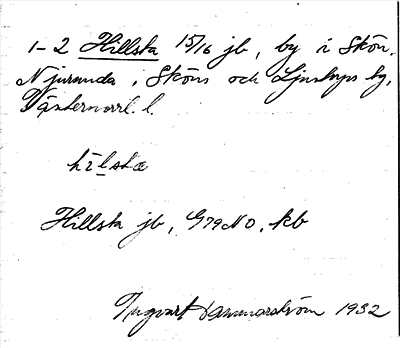 1-2 Hillsta 15/16 jb, by i Skön,
Njurunda, Sköns och Ljustorps tg,
Västernorrl. l.
hìlsta
Hillsta jb, G79NO, kb
Ingvart Hammarström 1932